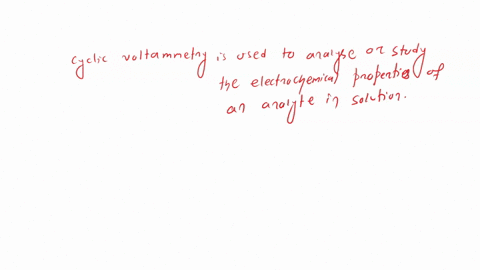 cyclic voltammetry is used to analyse or study
the electrochemical properties of
an analyte in solution.